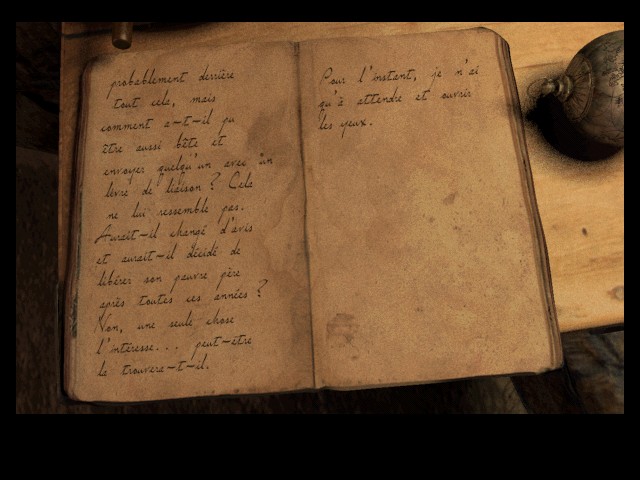 probablement derrière
tout cela, mais
comment a-t-il pu
être aussi bête et
envoyer quelqu'un avec un
livre de liaison ? Cela
ne lui ressemble pas.
Aurait-il changé d'avis
et aurait-il décidé de
libérer son pauvre père
après toutes ces années ?
Non, une seule chose
l'intéresse... peut-être
la trouvera-t-il.
Pour l'instant, je n'ai
qu'à attendre et ouvrir
les yeux.